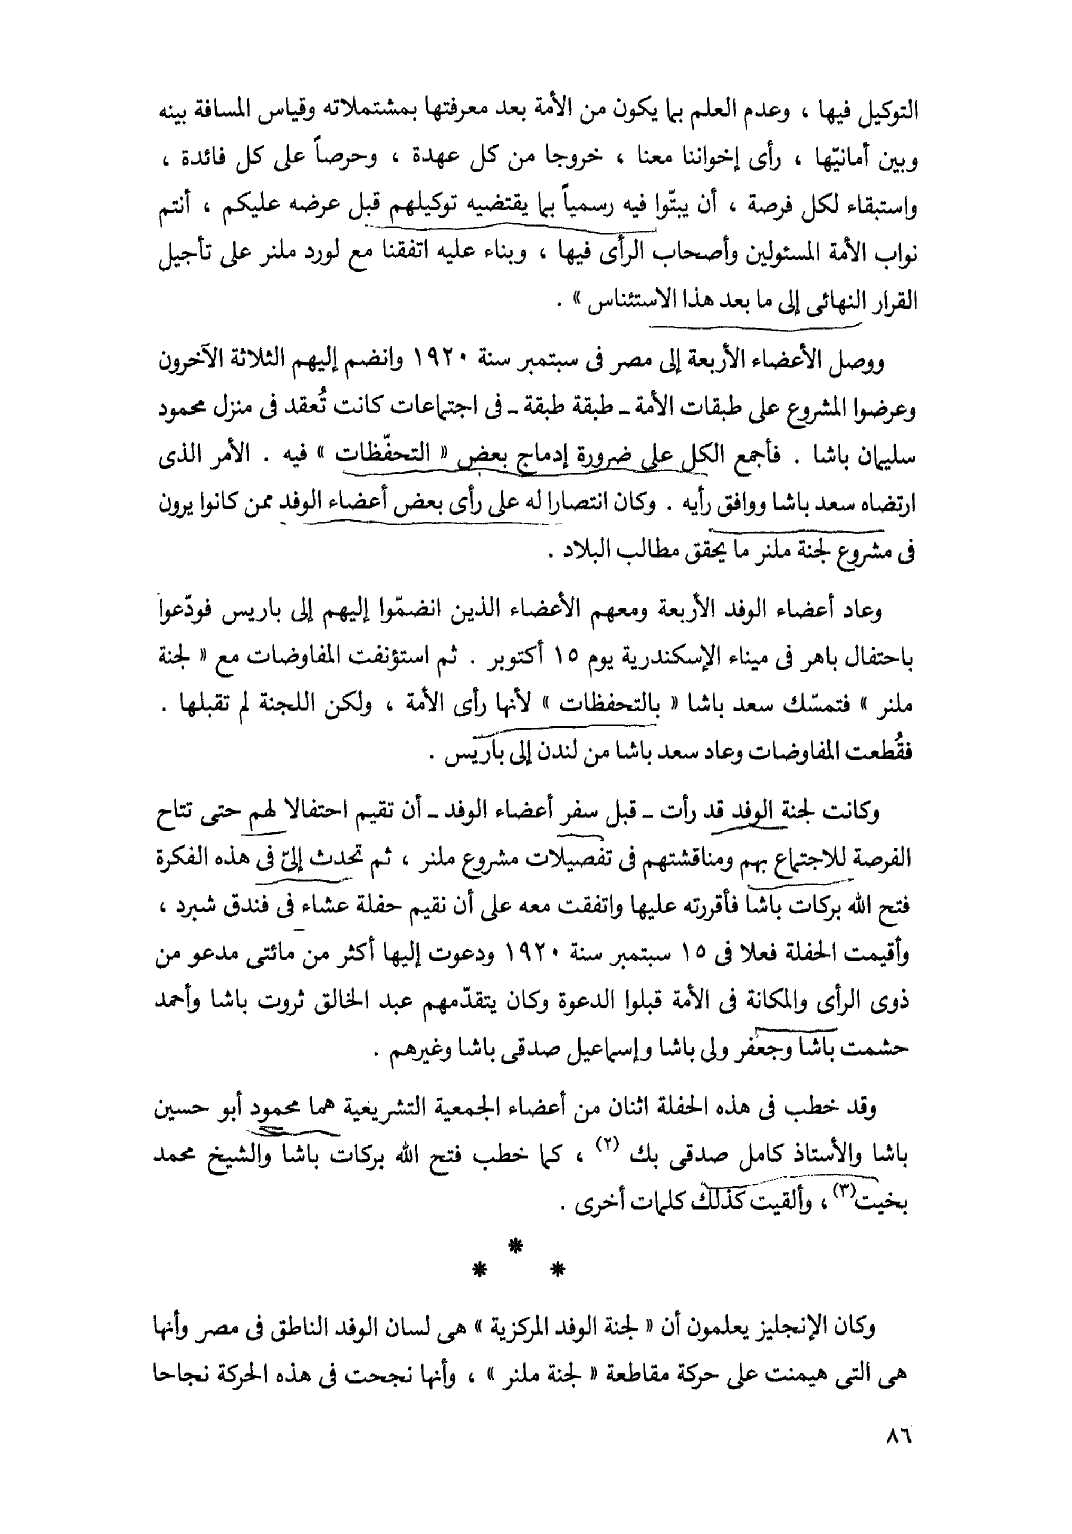 التوكيل فيها ، وعدم العلم بما يكون من الأمة بعد معرفتها بمشتملاته وقياس المسافة بينه
وبين أمانيّها ، رأى إخواننا معنا ، خروجا من كل عهدة ، وحرصاً على كل فائدة ،
واستبقاء لكل فرصة ، أن يبتّوا فيه رسمياً بما يقتضيه توكيلهم قبل عرضه عليكم ، أنتم
نواب الأمة المسئولين وأصحاب الرأى فيها ، وبناء عليه اتفقنا مع لورد ملنر على تأجيل
القرار النهائى إلى ما بعد هذا الاستئناس » .
ووصل الأعضاء الأربعة إلى مصر فى سبتمبر سنة ١٩٢٠ وانضم إليهم الثلاثة الآخرون
وعرضوا المشروع على طبقات الأمة ـ طبقة طبقة ـ فى اجتماعات كانت تُعقد فى منزل محمود
سليمان باشا . فأجمع الكل على ضرورة إدماج بعض « التحفّظات » فيه . الأمر الذى
ارتضاه سعد باشا ووافق رأيه . وكان انتصارا له على رأى بعض أعضاء الوفد ممن كانوا يرون
فى مشروع لجنة ملنر ما يحقق مطالب البلاد .
وعاد أعضاء الوفد الأربعة ومعهم الأعضاء الذين انضمّوا إليهم إلى باريس فودّعوا
باحتفال باهر فى ميناء الإسكندرية يوم ١٥ أكتوبر . ثم استؤنفت المفاوضات مع « لجنة
ملنر » فتمسّك سعد باشا « بالتحفظات » لأنها رأى الأمة ، ولكن اللجنة لم تقبلها .
فقُطعت المفاوضات وعاد سعد باشا من لندن إلى باريس .
وكانت لجنة الوفد قد رأت ـ قبل سفر أعضاء الوفد ـ أن تقيم احتفالا لهم حتى تتاح
الفرصة للاجتماع بهم ومناقشتهم فى تفصيلات مشروع ملنر ، ثم تحدث إلىّ فى هذه الفكرة
فتح الله بركات باشا فأقررته عليها واتفقت معه على أن نقيم حفلة عشاء فى فندق شبرد ،
وأقيمت الحفلة فعلا فى ١٥ سبتمبر سنة ١٩٢٠ ودعوت إليها أكثر من مائتى مدعو من
ذوى الرأى والمكانة فى الأمة قبلوا الدعوة وكان يتقدّمهم عبد الخالق ثروت باشا وأحمد
حشمت باشا وجعفر ولى باشا وإسماعيل صدقى باشا وغيرهم .
وقد خطب فى هذه الحفلة اثنان من أعضاء الجمعية التشريعية هما محمود أبو حسين
باشا والأستاذ كامل صدقى بك (٢) ، كما خطب فتح الله بركات باشا والشيخ محمد
بخيت(٣) ، وألقيت كذلك كلمات أخرى .
*
* *
وكان الإنجليز يعلمون أن « لجنة الوفد المركزية » هى لسان الوفد الناطق فى مصر وأنها
هى التى هيمنت على حركة مقاطعة « لجنة ملنر » ، وأنها نجحت فى هذه الحركة نجاحا
٨٦